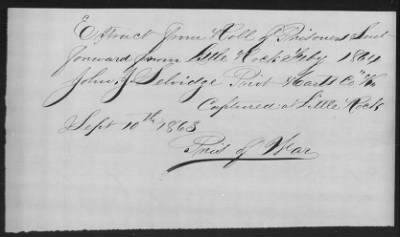 Extract from Roll of Prisoners Sent
forward from Little Rock Feby 1864
John J. Selvidge Privt
Captured at Little Rock
Sept 10th 1863
Pris of War